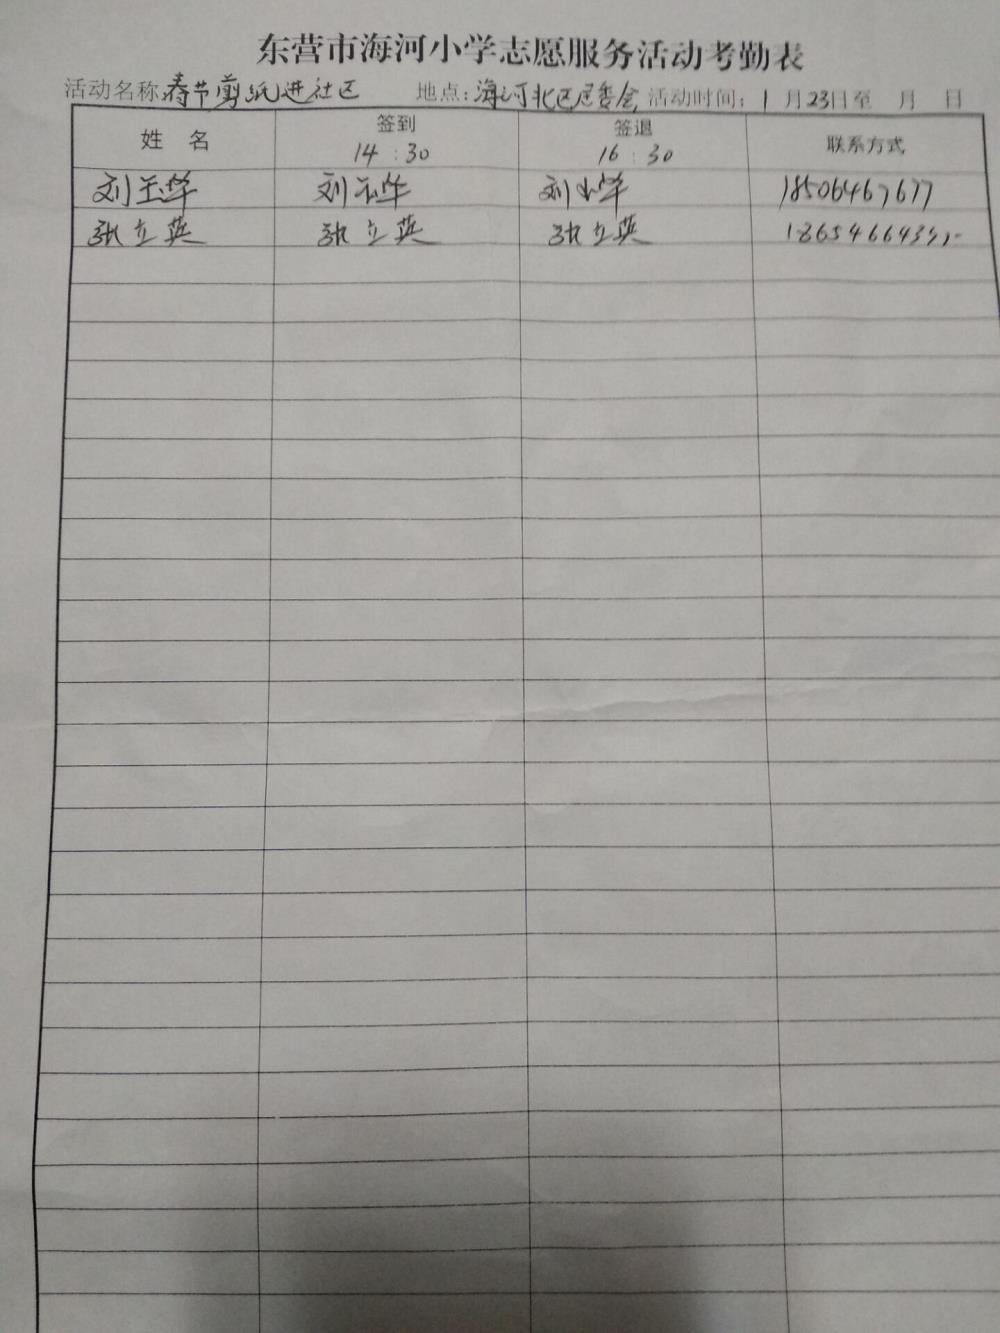 东营市海河小学志愿服务活动考勤表
活动名称:春节剪纸进社区 地点:海河北区居委会 活动时间: 1 月 23 日至 月 日
姓 名 签到 14:30 签退 16:30 联系方式
刘玉华 刘玉华 刘玉华 18506467677
张立英 张立英 张立英